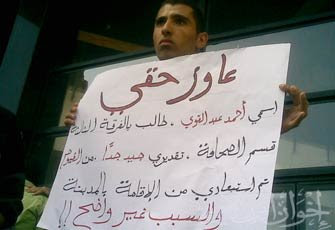 عاوز حقي
اسمي أحمد عبد القوي . طالب بالفرقة الثانية
قسم الصحافة . تقديري جيد جداً . من الفيوم
تم استبعادي من الإقامة بالمدينة
والسبب غير واضح !!
إخوان